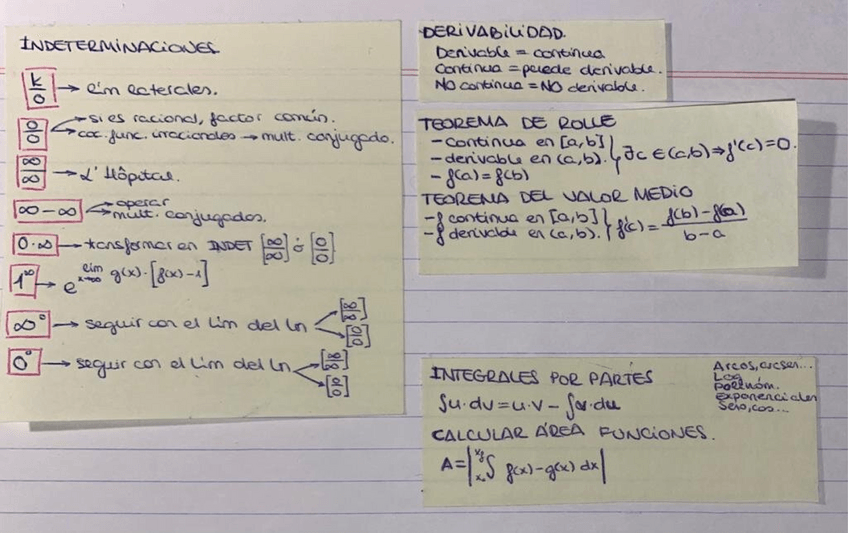 INDETERMINACIONES
k/0 → lím laterales.
0/0 → si es racional, factor común.
→ coc. func. irracionales → mult. conjugado.
∞/∞ → L'Hôpital.
∞-∞ → operar
→ mult. conjugados.
0·∞ → transformar en INDET [∞/∞] ó [0/0]
1^∞ → e^lim x→∞ g(x)·[f(x)-1]
∞° → seguir con el lim del ln → [∞/∞]
→ [0/0]
0° → seguir con el lim del ln → [∞/∞]
→ [0/0]
DERIVABILIDAD.
Derivable = continua
Continua = puede derivable.
NO continua = NO derivable.
TEOREMA DE ROLLE
- continua en [a,b]
- derivable en (a,b). } ∃c ∈ (a,b) ⇒ f'(c)=0.
- f(a)=f(b)
TEOREMA DEL VALOR MEDIO
- f continua en [a,b]
- f derivable en (a,b). } f'(c) = f(b)-f(a) / b-a
INTEGRALES POR PARTES
∫u·dv=u·v-∫v·du
Arcos, arcsen...
Log
Polinóm.
Exponenciales
Seno, cos...
CALCULAR ÁREA FUNCIONES.
A=| ∫ f(x)-g(x) dx|